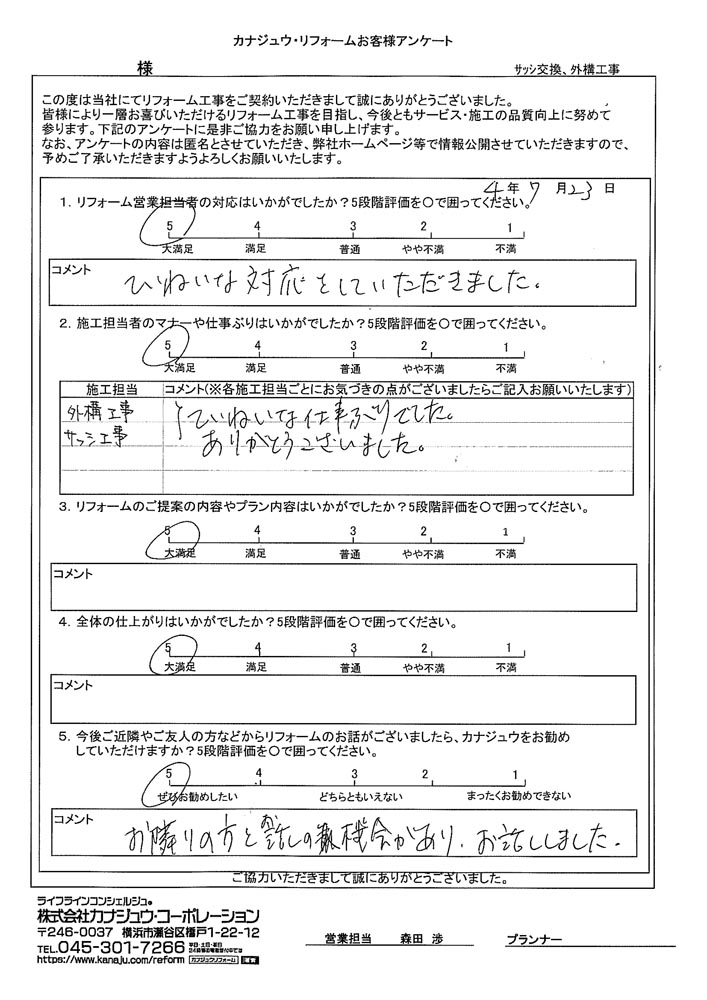 カナジュウ・リフォームお客様アンケート
様
サッシ交換、外構工事
この度は当社にてリフォーム工事をご契約いただきまして誠にありがとうございました。
皆様により一層お喜びいただけるリフォーム工事を目指し、今後ともサービス・施工の品質向上に努めて
参ります。下記のアンケートに是非ご協力をお願い申し上げます。
なお、アンケートの内容は匿名とさせていただき、弊社ホームページ等で情報公開させていただきますので、
予めご了承いただきますようよろしくお願いいたします。
4年 7月23日
1. リフォーム営業担当者の対応はいかがでしたか？5段階評価を〇で囲ってください。
5 4 3 2 1
大満足 満足 普通 やや不満 不満
コメント
ていねいな対応をしていただきました。
2. 施工担当者のマナーや仕事ぶりはいかがでしたか？5段階評価を〇で囲ってください。
5 4 3 2 1
大満足 満足 普通 やや不満 不満
施工担当 コメント(※各施工担当ごとにお気づきの点がございましたらご記入お願いいたします)
外構工事 ていねいな仕事ぶりでした。
サッシ工事 ありがとうございました。
3. リフォームのご提案の内容やプラン内容はいかがでしたか？5段階評価を〇で囲ってください。
5 4 3 2 1
大満足 満足 普通 やや不満 不満
コメント
4. 全体の仕上がりはいかがでしたか？5段階評価を〇で囲ってください。
5 4 3 2 1
大満足 満足 普通 やや不満 不満
コメント
5. 今後ご近隣やご友人の方などからリフォームのお話がございましたら、カナジュウをお勧め
していただけますか？5段階評価を〇で囲ってください。
5 4 3 2 1
ぜひお勧めしたい どちらともいえない まったくお勧めできない
コメント
お隣りの方とお話しの機会があり、お話ししました。
ご協力いただきまして誠にありがとうございました。
ライフラインコンシェルジュ®
株式会社カナジュウ・コーポレーション
〒246-0037 横浜市瀬谷区橋戸1-22-12
TEL.045-301-7266 平日・土日・祝日 24時間お電話受付中です
https://www.kanaju.com/reform カナジュウリフォーム 検索
営業担当 森田 渉 プランナー